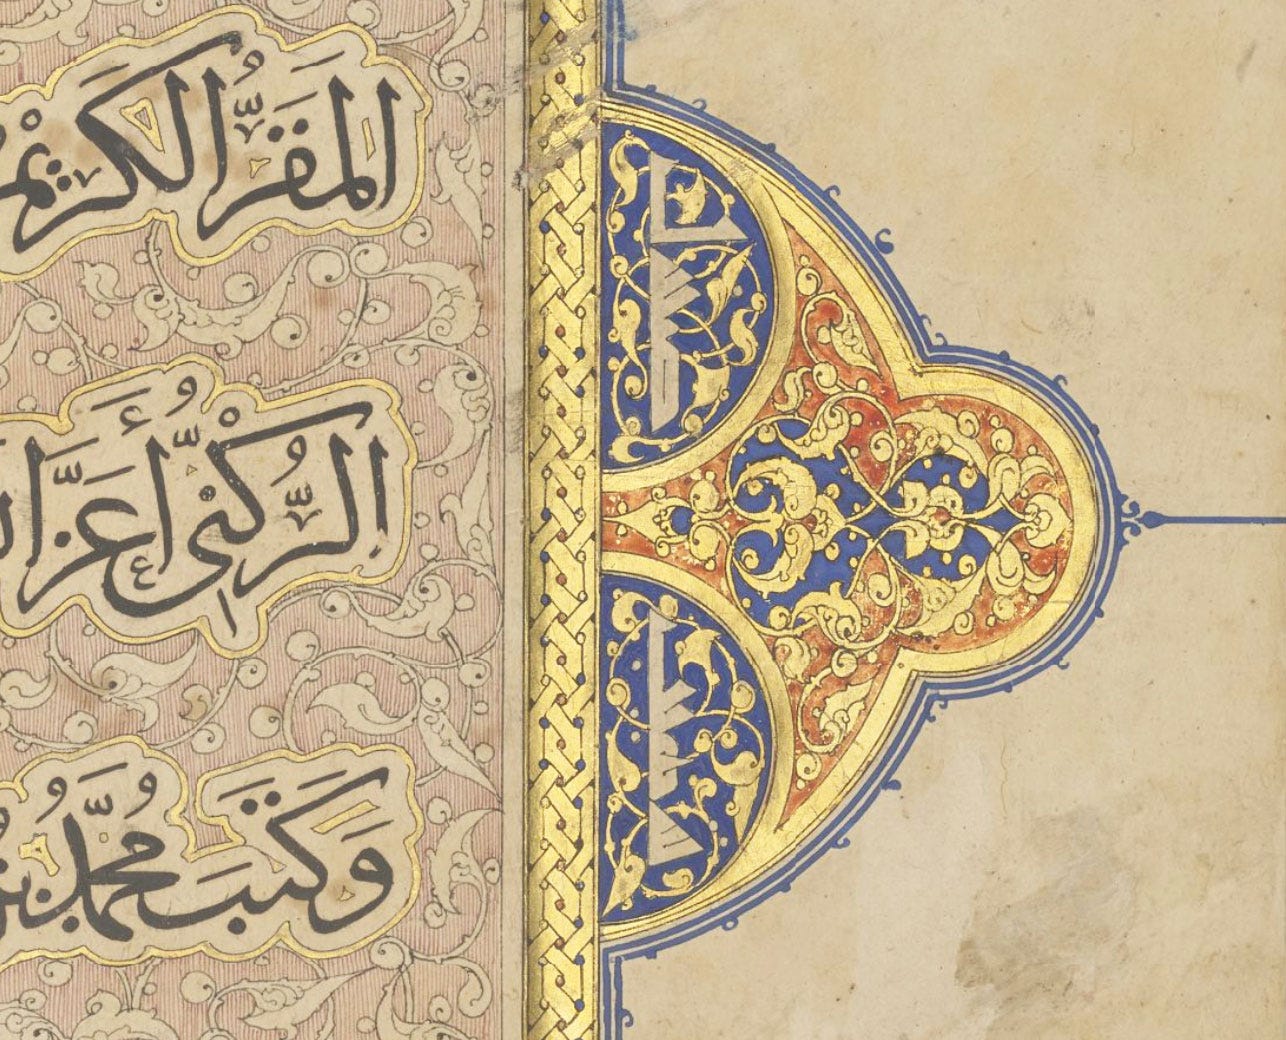 المَقَرُّ الكَريْم
الرُّكْنىُّ أَعَزَّ
وَكَتَبَ مُحَمَّدُ بنُ